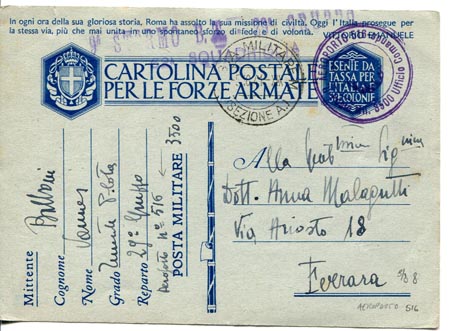 In ogni ora della sua gloriosa storia, Roma ha assolto la sua missione di civiltà. Oggi l'Italia prosegue per
la stessa via, più che mai unita in uno spontaneo sforzo di fede e di volontà. VITTORIO EMANUELE
CARTOLINA POSTALE
PER LE FORZE ARMATE
ESENTE DA
TASSA PER
L'ITALIA E
SUE COLONIE
POSTA MILITARE
SEZIONE A.
3500 Ufficio
Mittente
Cognome Balboni
Nome Vannes
Grado Pilota
Reparto 29º Gruppo
Aeroporto nº 516
POSTA MILITARE 3500
Alla
Dott. Anna Malagutti
Via Ariosto 18
Ferrara
AEROPORTO 516